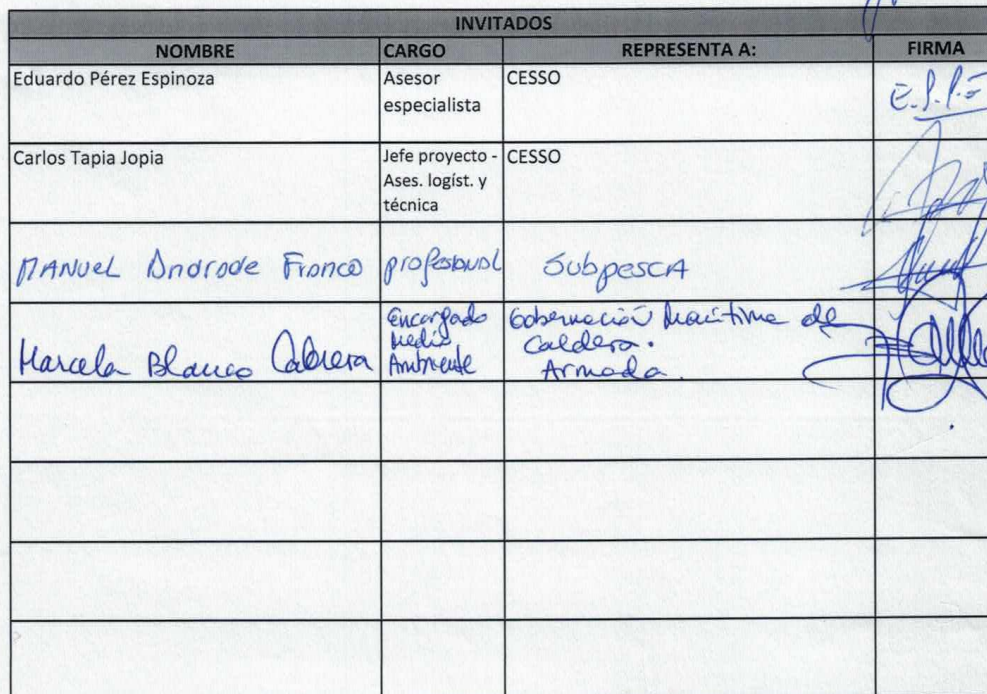 INVITADOS
NOMBRE CARGO REPRESENTA A: FIRMA
Eduardo Pérez Espinoza Asesor CESSO
especialista
E.P.P.E
Carlos Tapia Jopia Jefe proyecto - CESSO
Ases. logíst. y
técnica
MANUEL Andrade Franco profesional SubpescA
Marcela Blanco Cabrera Encargado Gobernación Marítima de
Medio Caldera.
Ambiente Armada